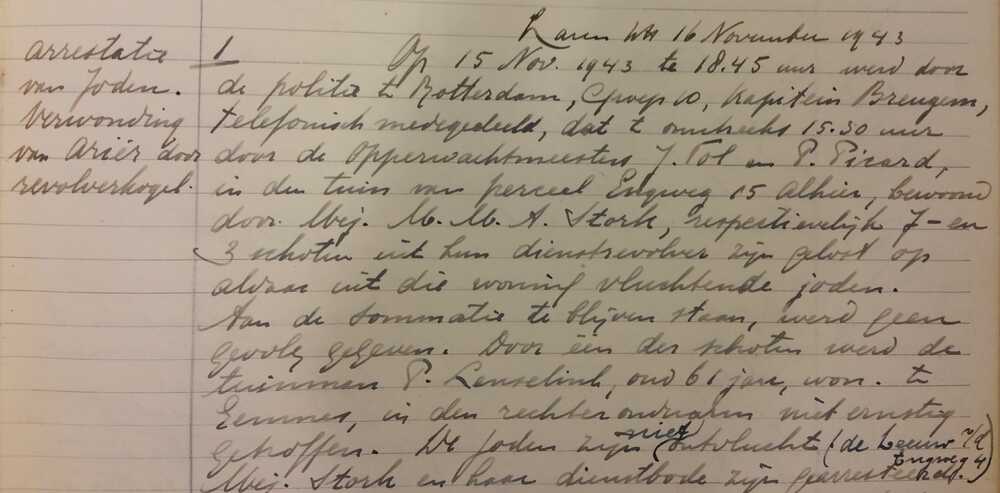 Laren NH 16 November 1943
arrestatie
van Joden.
Verwonding
van Ariër door
revolverkogel.
1
Op 15 Nov. 1943 te 18.45 uur werd door
de politie te Rotterdam, Groep 10, Kapitein Breugem,
telefonisch medegedeeld, dat te omstreeks 15.30 uur
door de Opperwachtmeesters J. Tol en P. Picard,
in den tuin van perceel Engweg 15 alhier, bewoond
door Mej. M. M. A. Stork, respectievelijk 7- en
3 schoten uit hun dienstrevolver zijn gelost op
aldaar uit die woning vluchtende joden.
Aan de sommatie te blijven staan, werd geen
gevolg gegeven. Door één der schoten werd de
tuinman P. Lenselink, oud 61 jaar, won. te
Eemnes, in den rechter onderarm niet ernstig
getroffen. De Joden zijn niet ontvlucht (de Leeuw
Engweg 4)
Mej. Stork en haar dienstbode zijn gearresteerd.